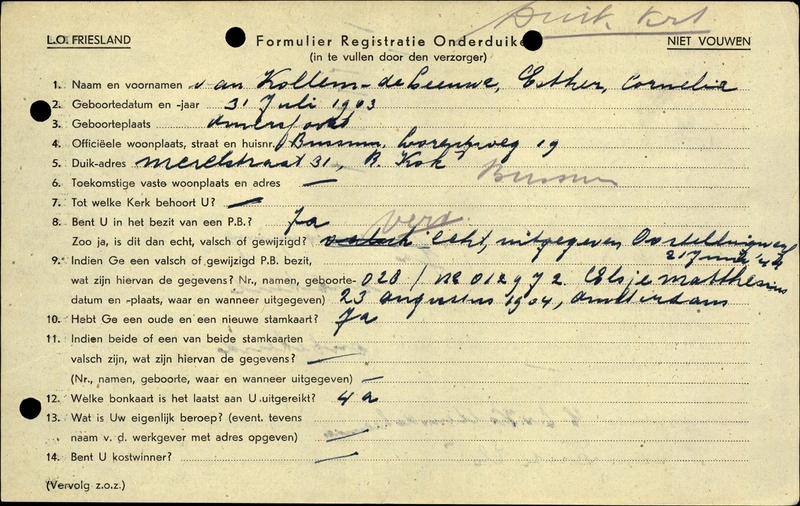 Duik. Kert
L.O. FRIESLAND
Formulier Registratie Onderduike
NIET VOUWEN
(in te vullen door den verzorger)
1. Naam en voornamen van Kollem-de Leeuwe, Esther, Cornelia
2. Geboortedatum en -jaar 31 Juli 1903
3. Geboorteplaats Amersfoort
4. Officiëele woonplaats, straat en huisnr. Bussum, Lorentzweg 19
5. Duik-adres Merelstraat 31, B. Kok
Bussum
6. Toekomstige vaste woonplaats en adres —
7. Tot welke Kerk behoort U? —
8. Bent U in het bezit van een P.B.? Ja
Zoo ja, is dit dan echt, valsch of gewijzigd? echt, uitgegeven
21 Juni '44
9. Indien Ge een valsch of gewijzigd P.B. bezit,
wat zijn hiervan de gegevens? Nr., namen, geboorte- 028 / 012972. Elsje Matthesius
datum en -plaats, waar en wanneer uitgegeven) 23 augustus 1904, Amsterdam
10. Hebt Ge een oude en een nieuwe stamkaart? Ja
11. Indien beide of een van beide stamkaarten
valsch zijn, wat zijn hiervan de gegevens? —
(Nr., namen, geboorte, waar en wanneer uitgegeven) —
12. Welke bonkaart is het laatst aan U uitgereikt? 4a
13. Wat is Uw eigenlijk beroep? (event. tevens
naam v. d. werkgever met adres opgeven) —
14. Bent U kostwinner? —
(Vervolg z.o.z.)